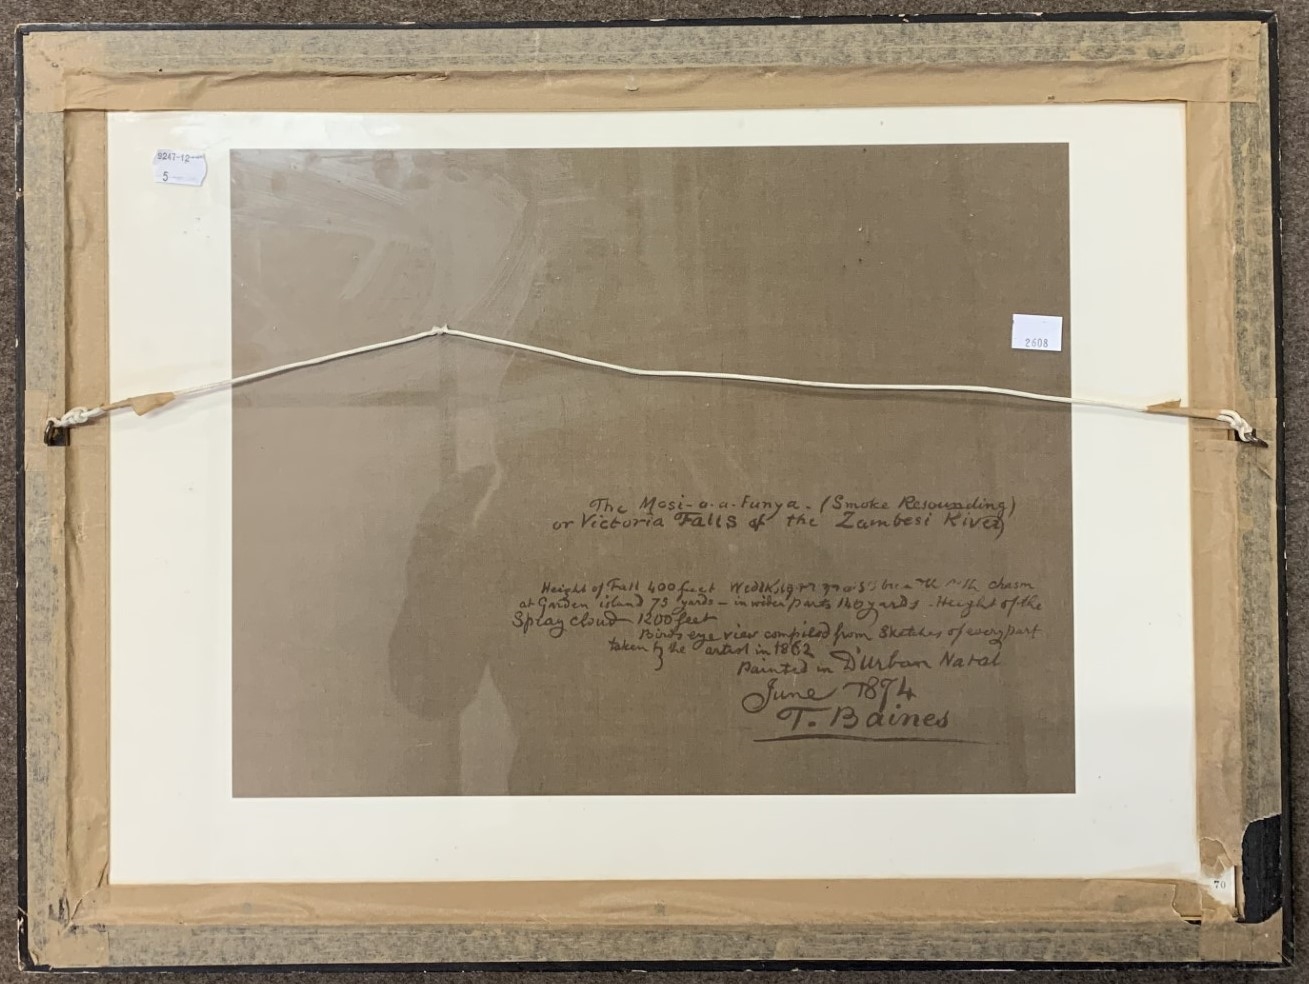 9247-12
5
2608
The Mosi-o.a.Funya. (Smoke Resounding)
or Victoria Falls of the Zambesi River
Height of Fall 400 feet chasm
at Garden island 75 yards – in wider parts 140 yards. Height of the
Spray cloud 1200 feet
Birds eye view compiled from Sketches of every part
taken by the artist in 1862
Painted in D'urban Natal
June 1874
T. Baines
70